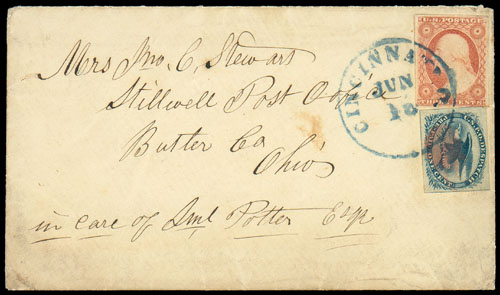 Mrs Jno. C, Stewart
Stillwell Post Office
Butler Co
Ohio
in care of Saml Potter Esqr
CINCINNATI O.
JUN
18
U.S. POSTAGE
THREE CENTS